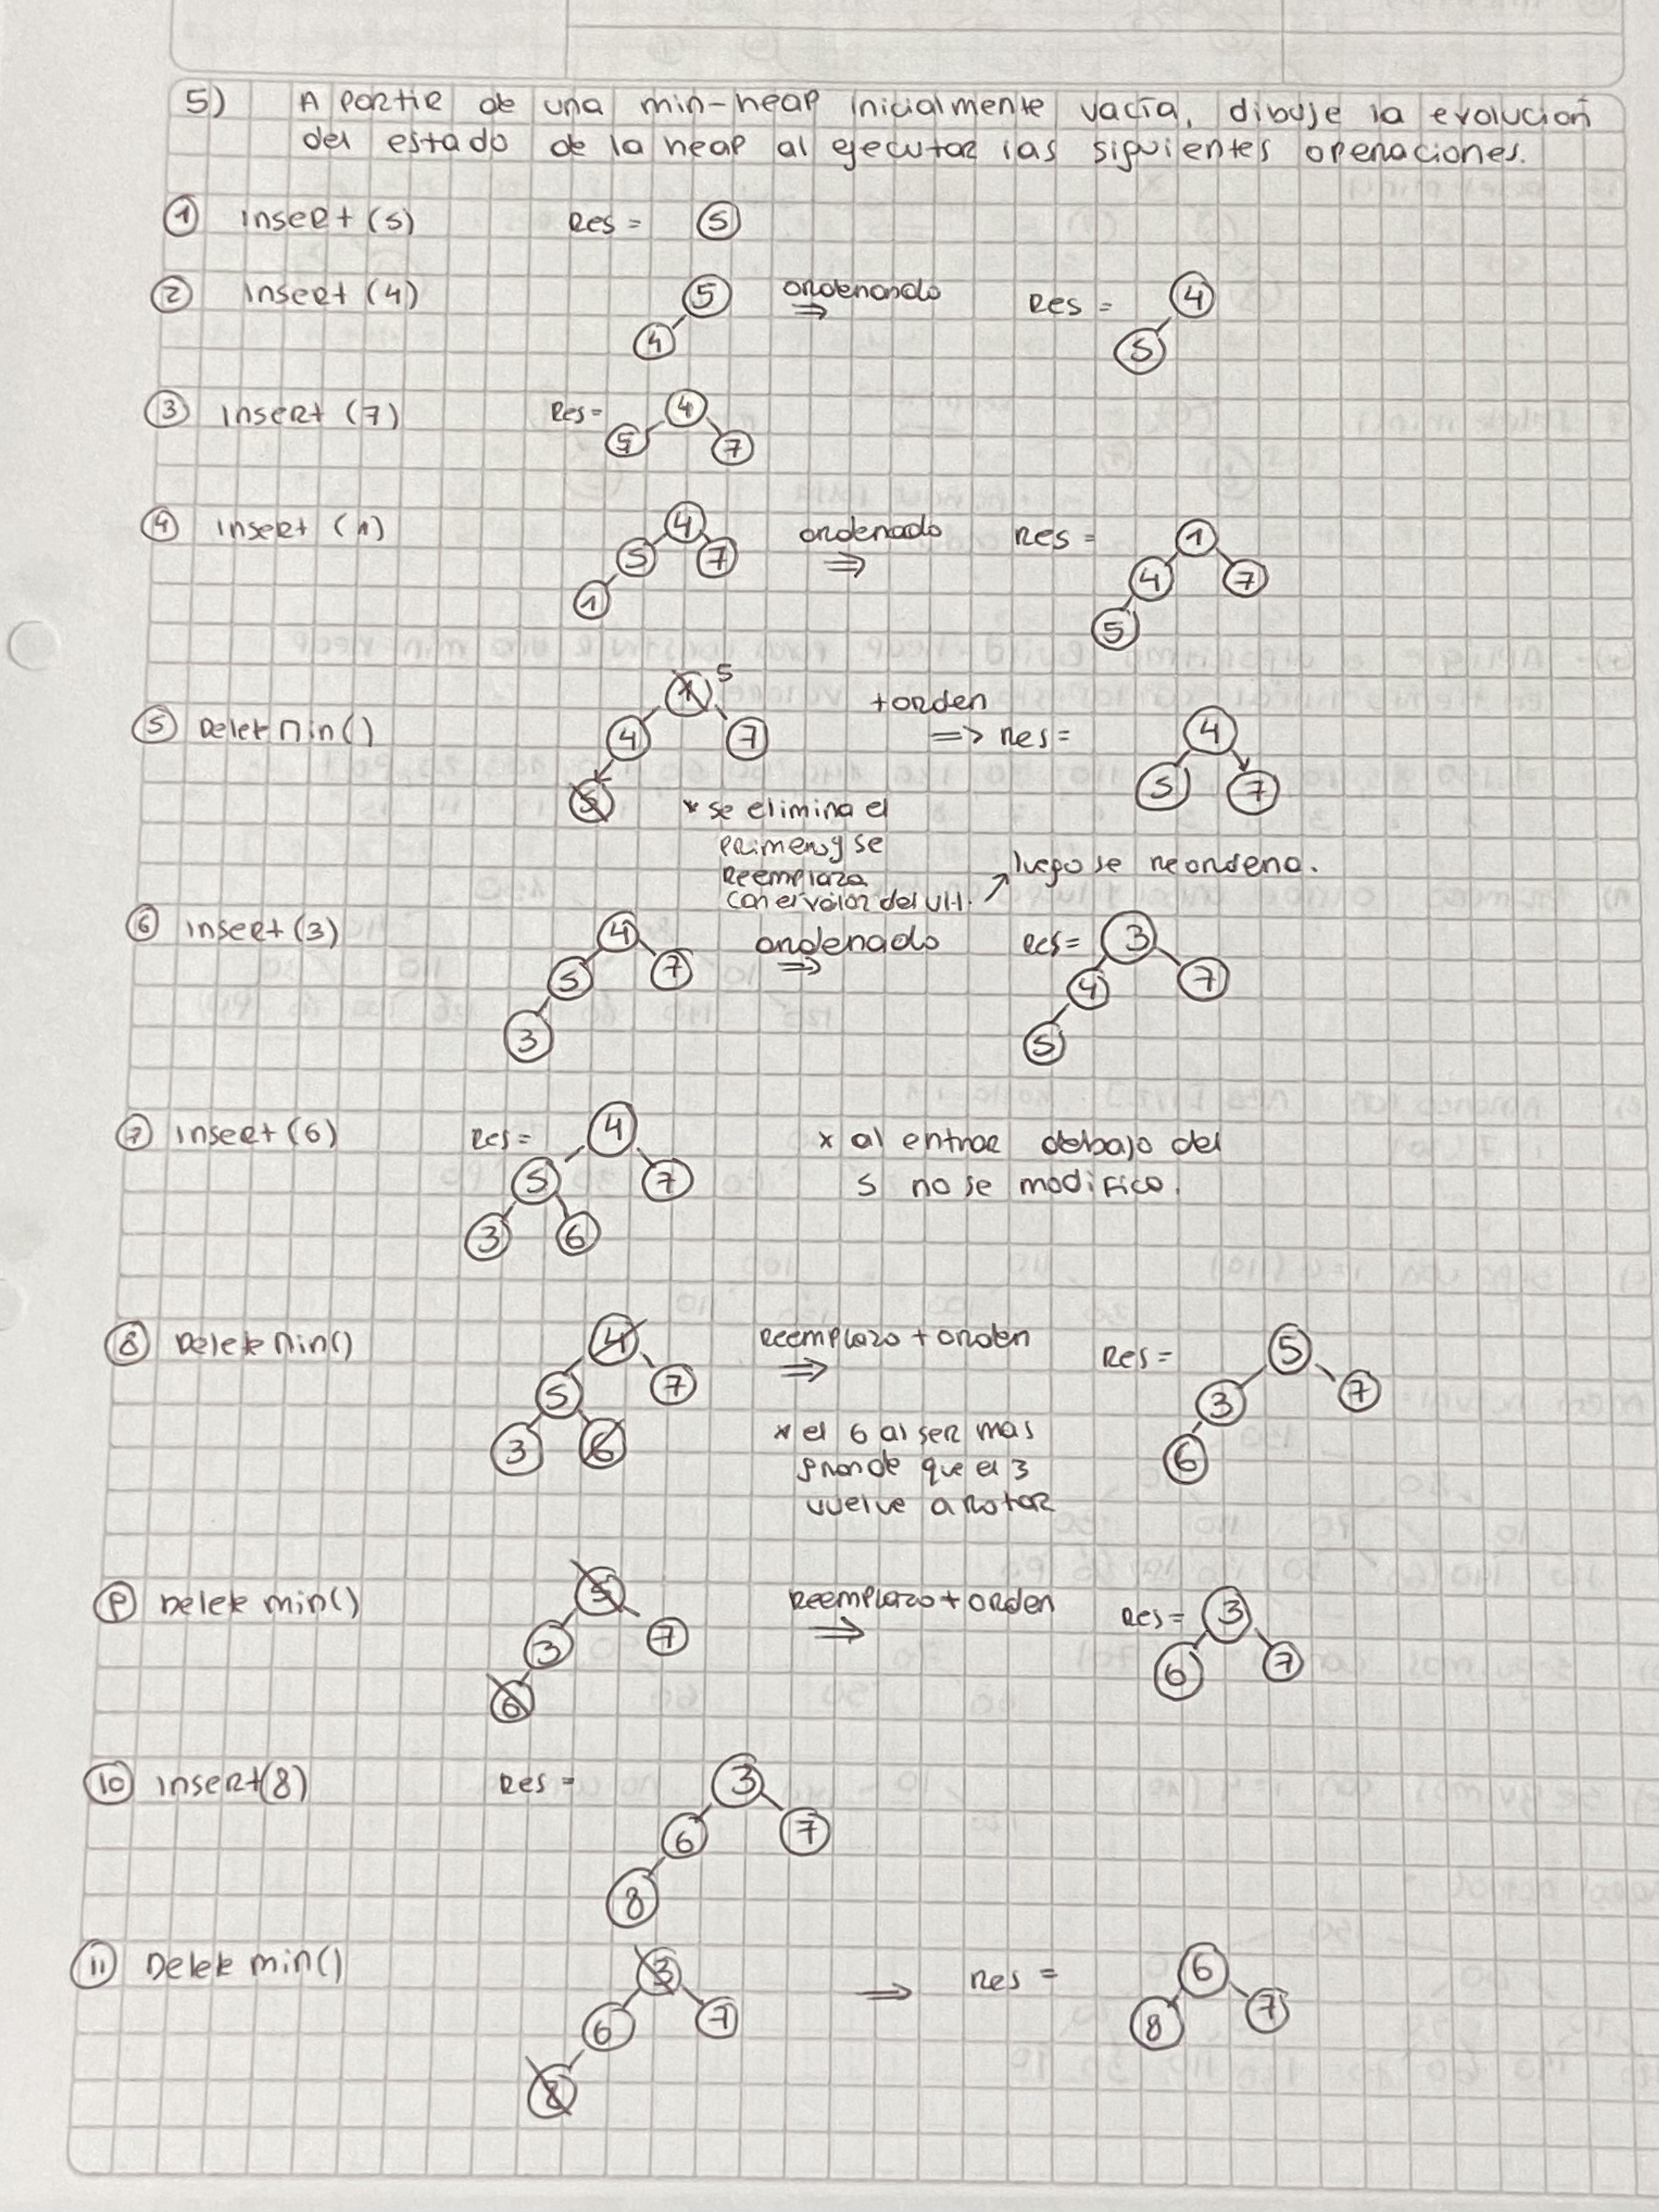 5) A partir de una min-heap inicialmente vacía, dibuje la evolución
del estado de la heap al ejecutar las siguientes operaciones.
① insert (5) Res = 5
② insert (4) 5 4 ordenando ⇒ Res = 4 5
③ insert (7) Res= 4 5 7
④ insert (1) 4 5 7 1 ordenado ⇒ Res = 1 4 7 5
⑤ Delet Min() 1 5 4 7 5 + orden ⇒ Res= 4 5 7
* se elimina el
primero y se
reemplaza
con el valor del ult. ↗ luego se reordena.
⑥ insert (3) 4 5 7 3 ordenado ⇒ Res= 3 4 7 5
⑦ insert (6) Res= 4 5 7 3 6
x al entrar debajo del
5 no se modifico.
⑧ Delete Min() 4 5 7 3 6 Reemplazo + orden ⇒ Res= 5 3 7 6
* el 6 al ser mas
grande que el 3
vuelve a rotar
⑨ Delete min() 5 3 7 6 Reemplazo + orden ⇒ Res= 3 6 7
⑩ insert(8) Res = 3 6 7 8
⑪ Delete min() 3 6 7 8 ⇒ Res = 6 8 7